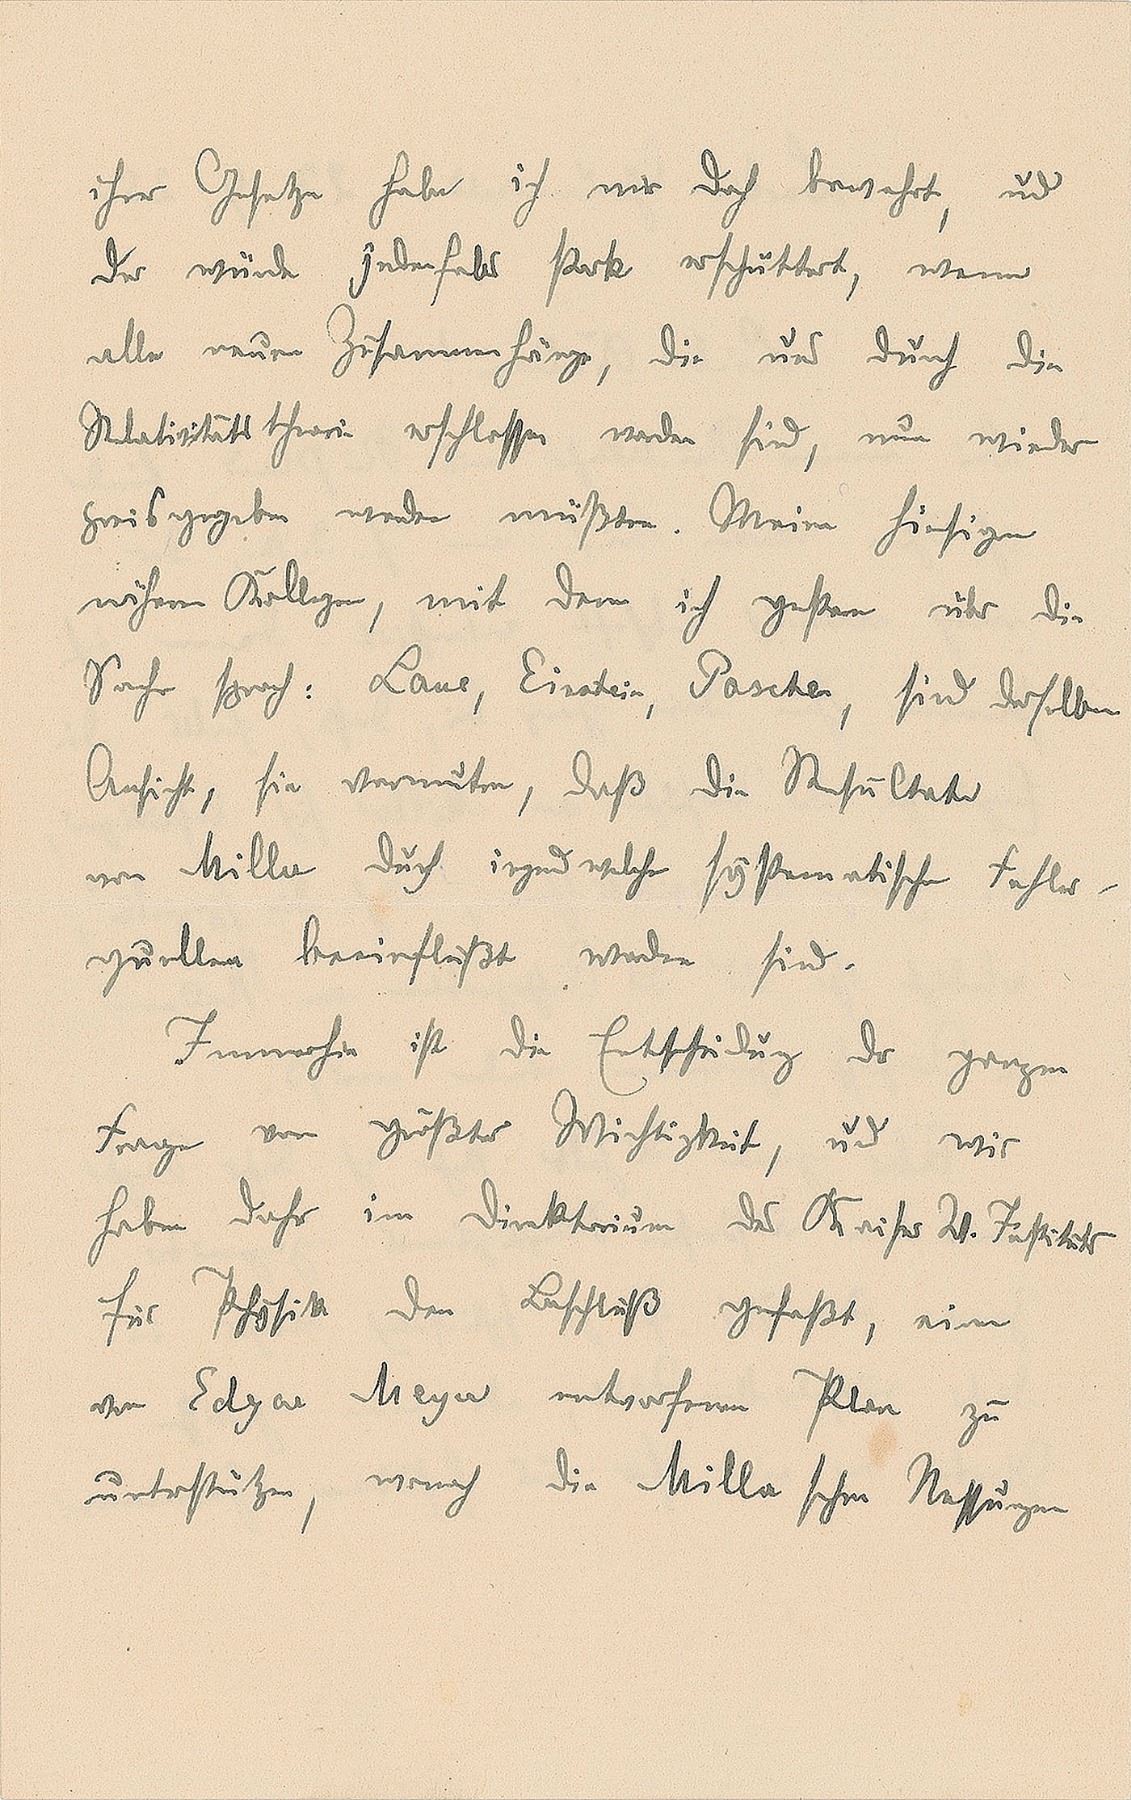 ihrer Gesetze habe ich mir doch bewahrt, und
der würde jedenfalls stark erschüttert, wenn
alle neuen Zusammenhänge, die uns durch die
Relativitätstheorie erschlossen worden sind, nun wieder
preisgegeben werden müßten. Meine hiesigen
näheren Kollegen, mit denen ich gestern über die
Sache sprach: Laue, Einstein, Paschen, sind derselben
Ansicht, sie vermuten, daß die Resultate
von Miller durch irgendwelche systematische Fehler-
quellen beeinflußt worden sind.
Immerhin ist die Entscheidung der ganzen
Frage von größter Wichtigkeit, und wir
haben daher im Direktorium des Kaiser W. Instituts
für Physik den Beschluß gefaßt, einen
von Edgar Meyer entworfenen Plan zu
unterstützen, wonach die Millerschen Messungen